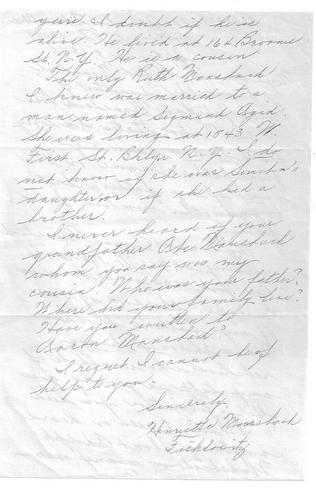 years. I doubt if he is
alive. He lived at 164 Broome
St. N.Y. He is a cousin
The only Ruth Mansbach
I knew was married to a
man named Sigmund Agid.
She was living at 1543 W.
First St. Bklyn N.Y. I do
not know if she was Simon's
daughter or if she had a
brother.
I never heard of your
grandfather Abe Mansbach
whom you say was my
cousin. Who was your father?
Where did your family live?
Have you written to
Aaron Mansbach?
I regret I cannot be of
help to you.
Sincerely,
Henriette Mansbach